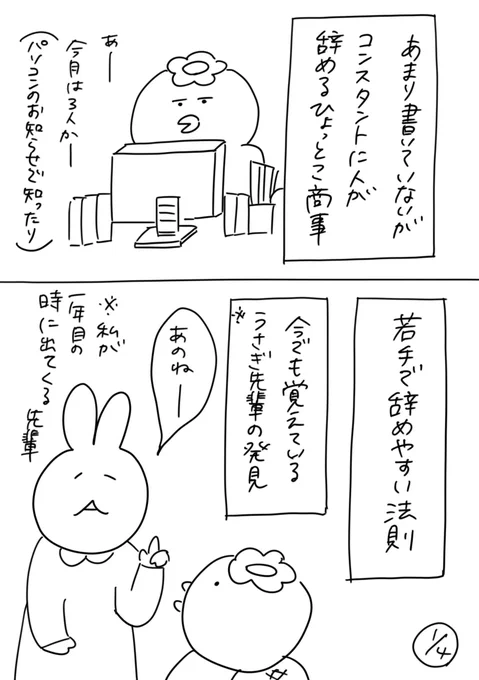 あまり書いていないが
コンスタントに人が
辞めるひょっとこ商事
あー
今月は3人かー
(パソコンのお知らせで知ったり)
若手で辞めやすい法則
今でも覚えている
うさぎ先輩の発見
※
あのねー
※私が
一年目の
時に出てくる先輩
1/4